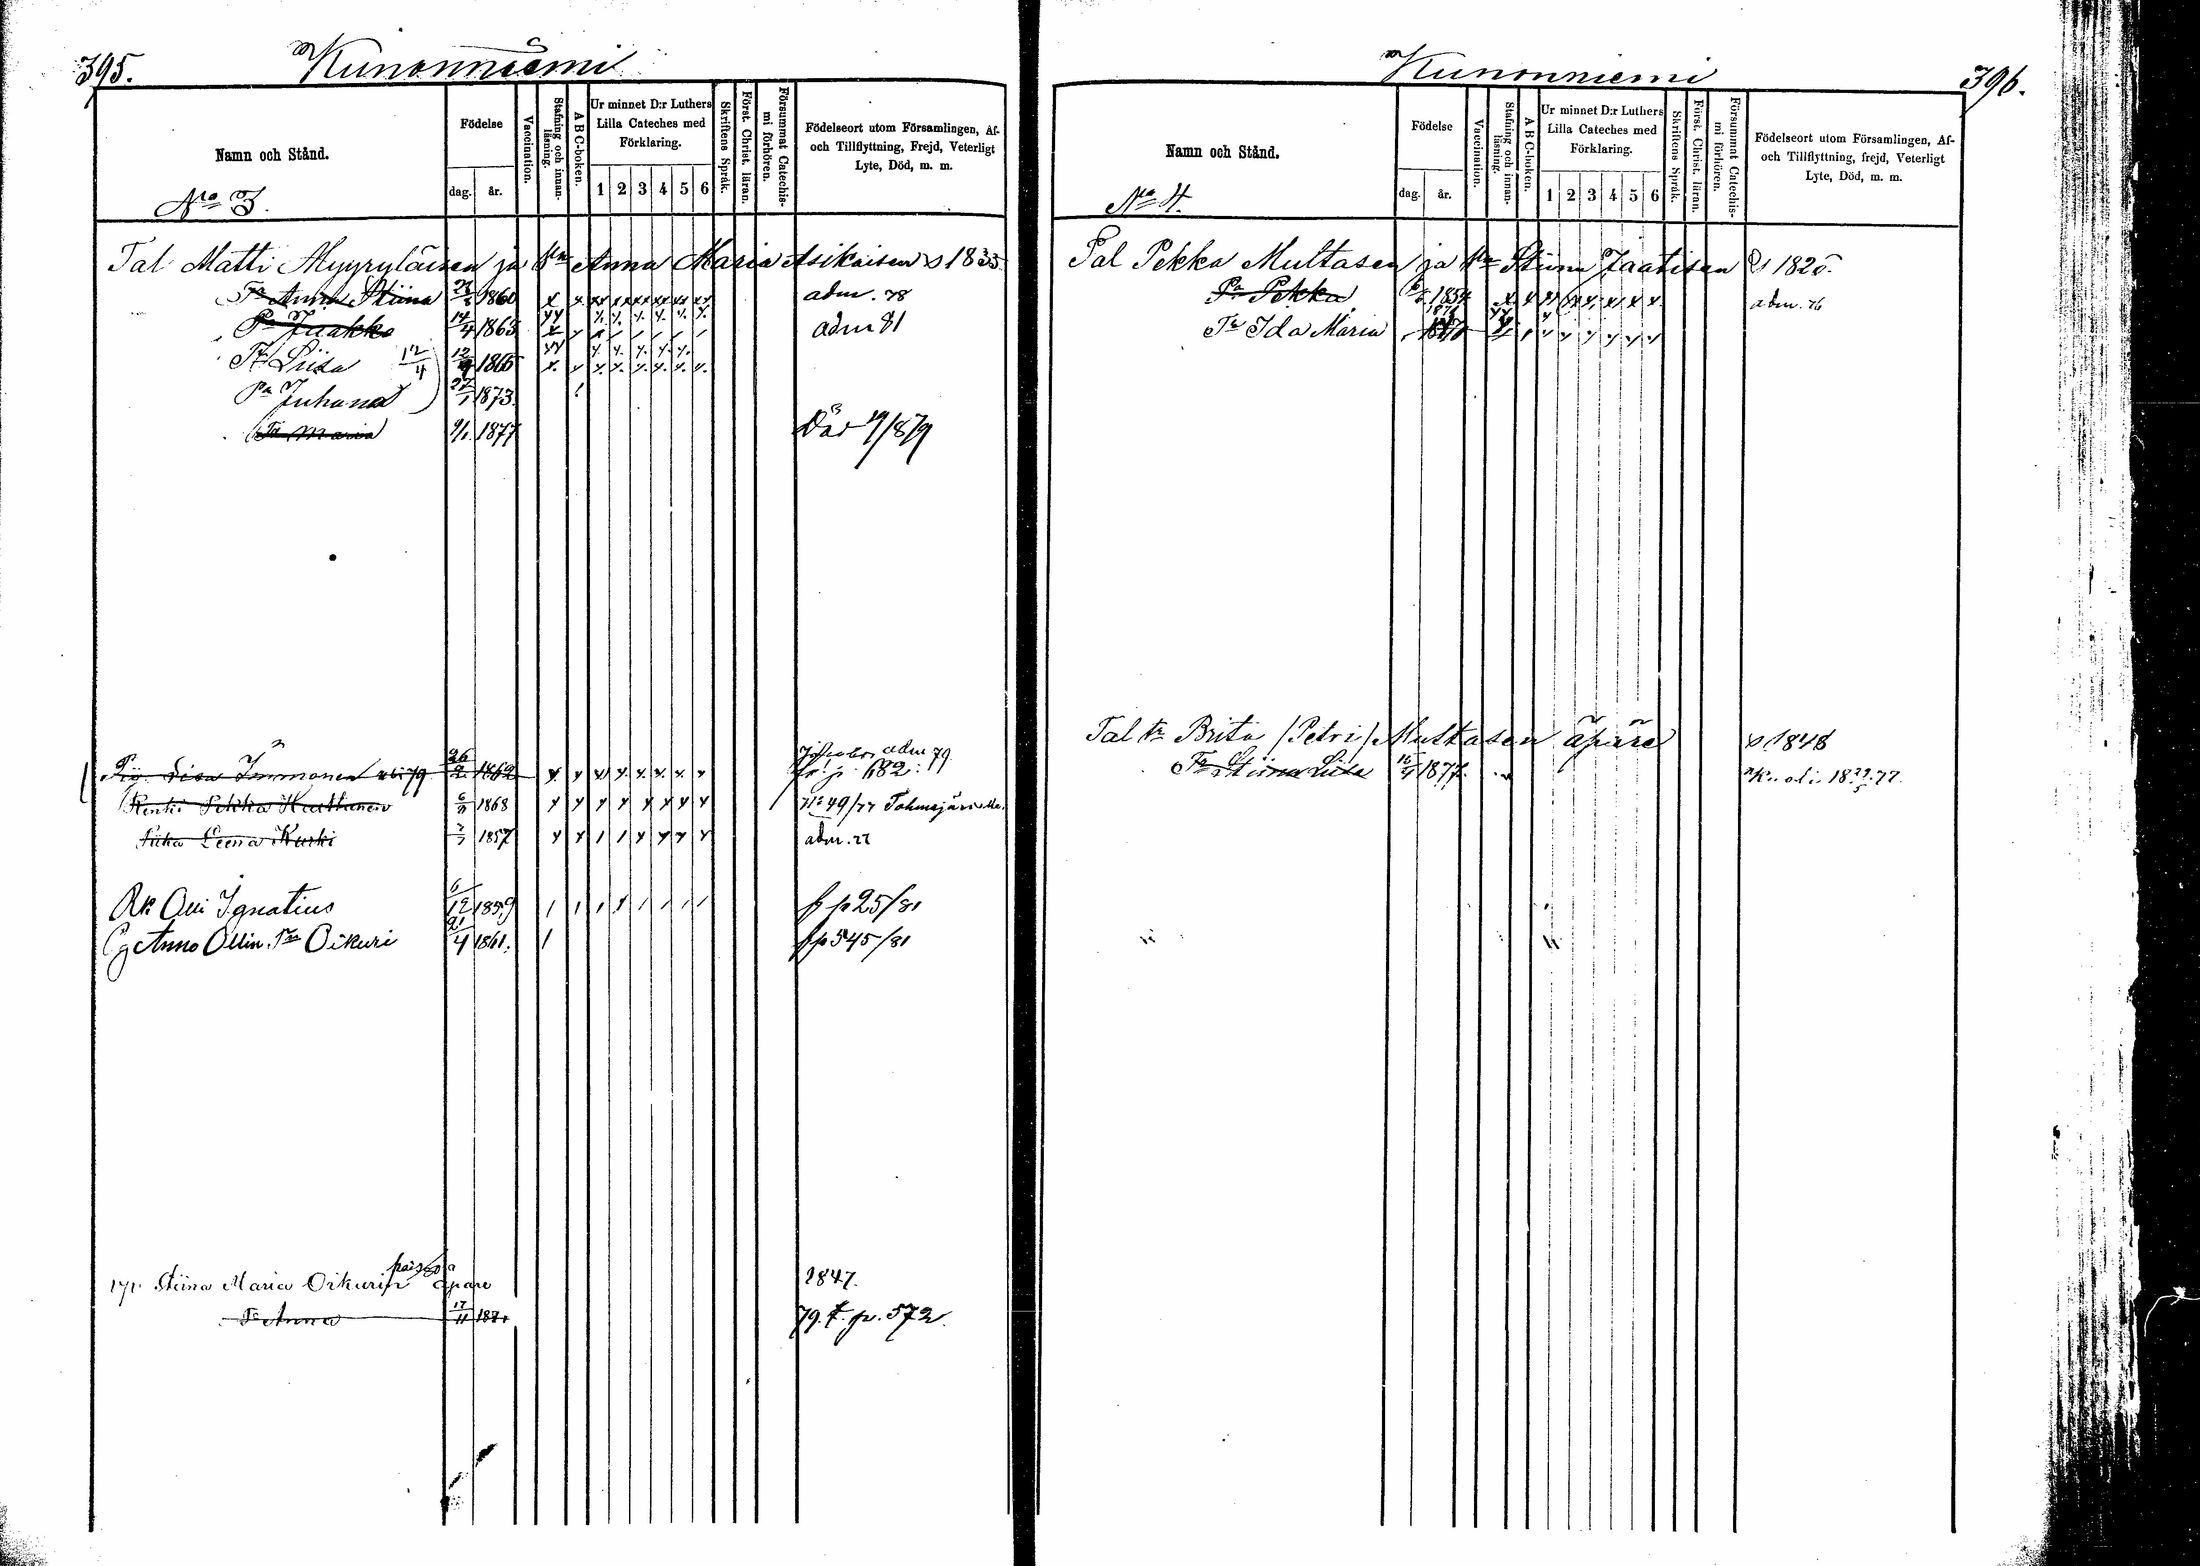 395.
Kunonniemi
Namn och Stånd.
No 3.
Födelse
dag. år.
Vaccination.
Stafning och innan-läsning.
A B C-boken.
Ur minnet D:r Luthers
Lilla Cateches med
Förklaring.
1 2 3 4 5 6
Skriftens Språk.
Först. Christ. läran.
Försummat Catechis-mi förhören.
Födelseort utom Församlingen, Af-
och Tillflyttning, Frejd, Veterligt
Lyte, Död, m. m.
Tal Matti Myyryläisen ja Anna Maria Asikaisen s 1835
Tr Anna Stiina 1860 adm. 78
Pa Jaakko 14/4 1863 adm 81
Tr Liisa 12/4 12/9 1866
Pa Juhana 27/1 1873.
Tr Maria 9/1 1877
Pij. Lisa Immonen 79 26/2 1862 adm 79
682:
Renki Pekka Karttunen 1868 No 49/77 Tohmajärvelle
Piika Leena Kurki 1857 adm. 77
Rk Olli Ignatius 6/12 1859 fr p 25/81
Anno Ollin Tr Oikuri 21/4 1861. fr p 545/81
Stiina Maria Oikurin äpärä 1847.
Tr Anna 17/11 79. f. p. 572
Kunonniemi
396.
Namn och Stånd.
No 4.
Födelse
dag. år.
Vaccination.
Stafning och innan-läsning.
A B C-boken.
Ur minnet D:r Luthers
Lilla Cateches med
Förklaring.
1 2 3 4 5 6
Skriftens Språk.
Först. Christ. läran.
Försummat Catechis-mi förhören.
Födelseort utom Församlingen, Af-
och Tillflyttning, frejd, Veterligt
Lyte, Död, m. m.
Tal Pekka Multasen ja Stiina Jaatisen s 1825.
Pa Pekka 1854 adm. 76
Tr Ida Maria
Tal tr Brita (Petri) Multasen äpärä s 1848
Tr Stiina Liisa 1877.